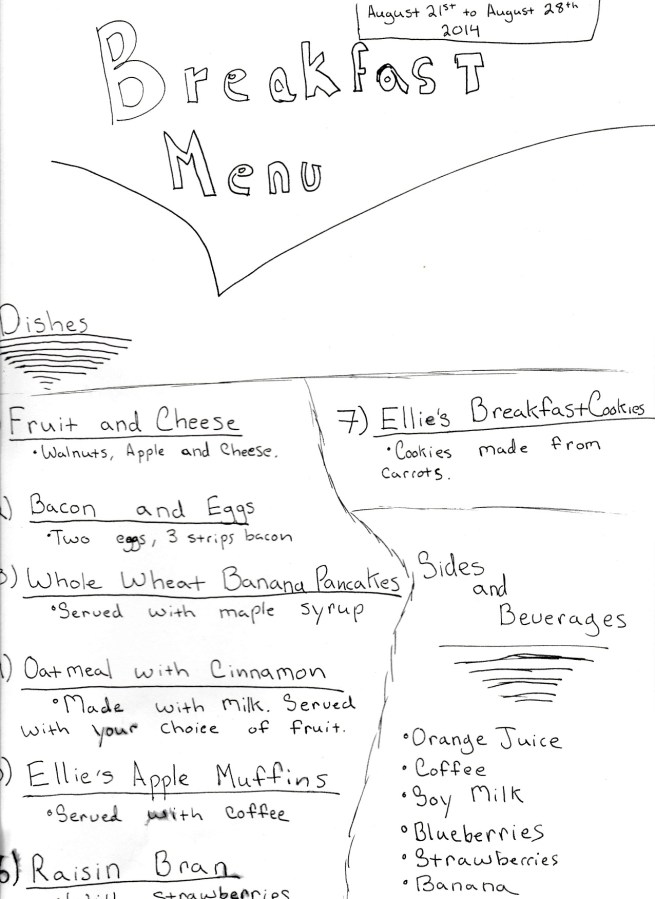 August 21st to August 28th
2014
Breakfast
Menu
Dishes
Fruit and Cheese
•Walnuts, Apple and Cheese.
) Bacon and Eggs
•Two eggs, 3 strips bacon
3) Whole Wheat Banana Pancakes
•Served with maple syrup
) Oatmeal with Cinnamon
•Made with milk. Served
with your choice of fruit.
) Ellie's Apple Muffins
•Served with coffee
6) Raisin Bran
strawberries
7) Ellie's Breakfast Cookies
•Cookies made from
carrots.
Sides
and
Beverages
•Orange Juice
•Coffee
•Soy Milk
•Blueberries
•Strawberries
•Banana